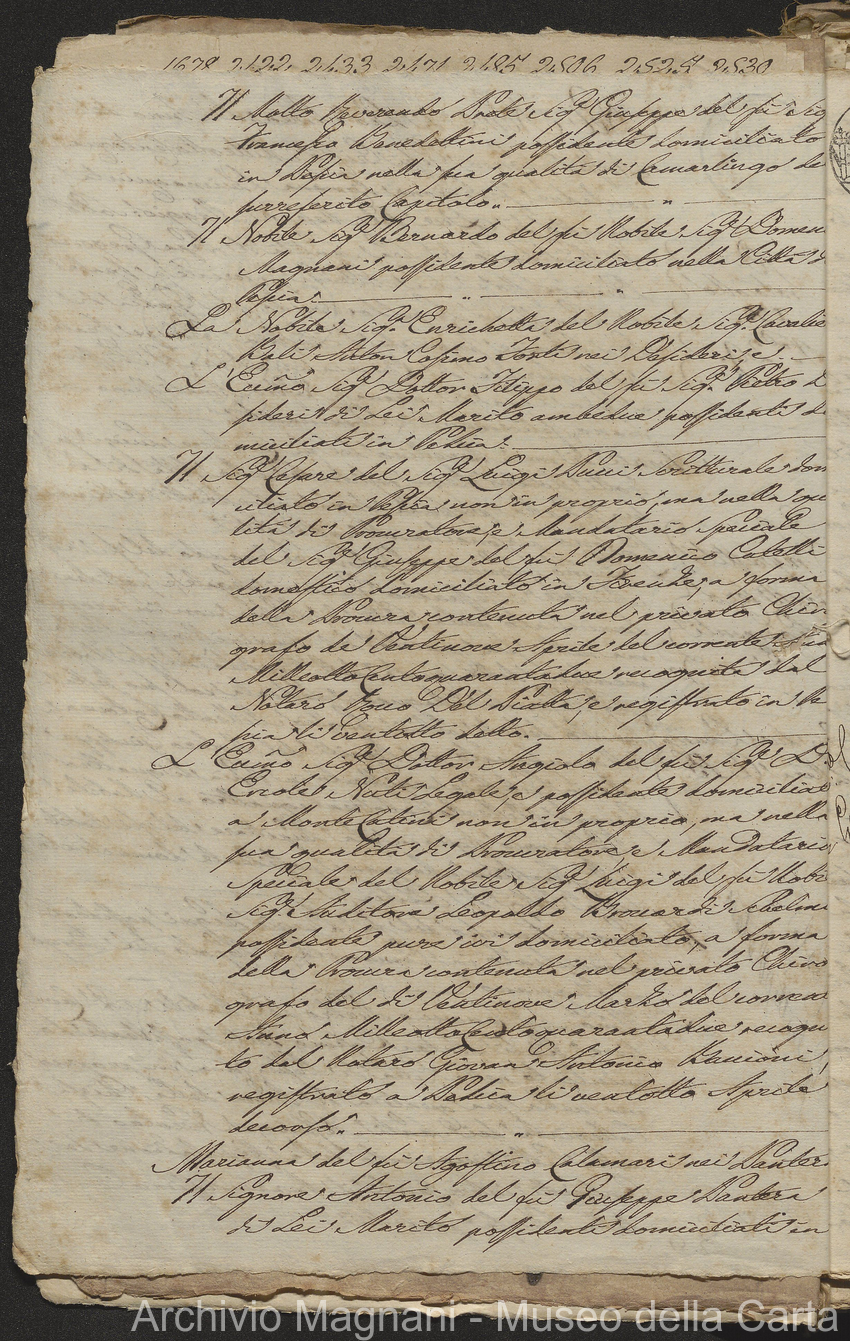 1678 2122 2133 2171 2185 2506 2525 2530
Il Molto Reverendo Prete Sigr. Giuseppe del fu Sig
Francesco Benedettini possidente domiciliato
in Pescia nella sua qualità di Camarlingo de
surreferito Capitolo.
Il Nobile Sigr. Bernardo del fu Nobile Sigr. Domen
Magnani possidente domiciliato nella Città d
Pescia.
La Nobile Sigra. Enrichetta del Nobile Sigr. Cavalie
Balì Anton Cosimo Forti nei Desideri, e
L'Eccmo Sigr. Dottor Filippo del fu Sigr. Pietro D
sideri di Lei Marito ambedue possidenti d
miciliati in Pescia.
Il Sigr. Cesare del Sigr. Luigi Pucci Scritturale dom
iciliato in Pescia non in proprio, ma nella qua
lità di Procuratore, e Mandatario Speciale
del Sigr. Giuseppe del fu Domenico
domestico domiciliato in Firenze, a forma
della Procura contenuta nel privato Chiro
grafo de' Ventinove Aprile del corrente Ann
Milleottocentoquarantadue recognita dal
Notaro Del Pialla, e registrato in Pe
scia li ventotto detto.
L'Eccmo Sigr. Dottor Angiolo del fu Sigr. D
Ercole Nuti Legale, e possidente domiciliat
a Monte Catini non in proprio, ma nella
sua qualità di Procuratore, e Mandatario
Speciale del Nobile Sigr. Luigi del fu Nobi
Sigr. Auditore Leopoldo
possidente pure ivi domiciliato, a forma
della Procura contenuta nel privato Chiro
grafo del dì Ventinove Marzo del corren
Anno Milleottocentoquarantadue recogni
to dal Notaro Giovan Antonio
registrato a Pescia li ventotto Aprile
decorso.
Marianna del fu Agostino Calamari nei Panter
Il Signore Antonio del fu Giuseppe Pantera
di Lei Marito possidenti domiciliati in
Archivio Magnani - Museo della Carta